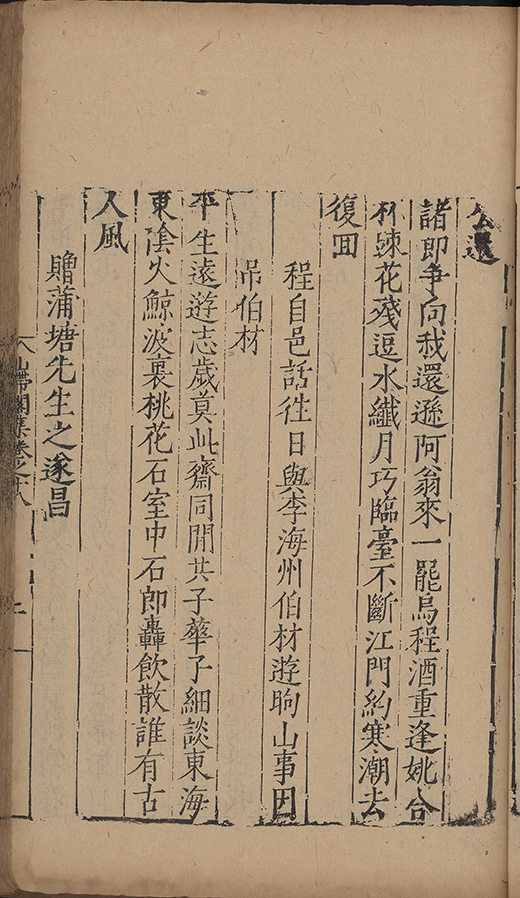 公選
諸郎爭向我還遜阿翁來一罷烏程酒重逢姚合
杯竦花殘逗水纖月巧臨臺不斷江門約寒潮去
復囬
程自邑話徃日與李海州伯材遊朐山事因
吊伯材
平生遠遊志歲莫此齋同開共子華子細談東海
東陰火鯨波裏桃花石室中石郎轟飲散誰有古
人風
贈蒲塘先生之遂昌
閣集卷之十八